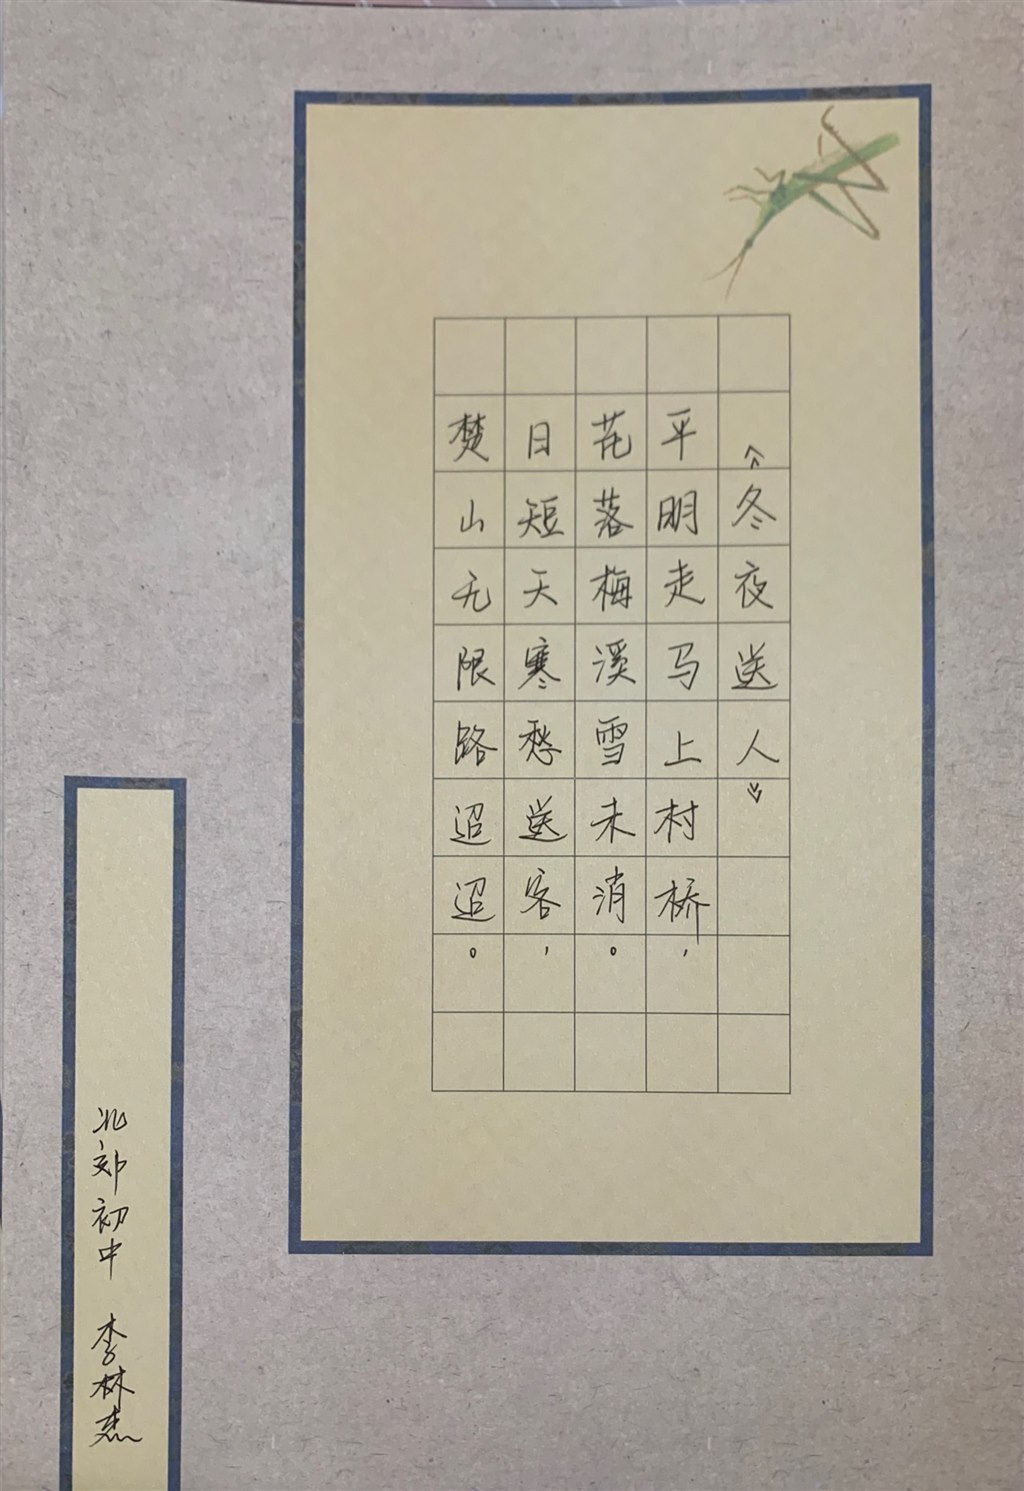 《冬夜送人》
平明走马上村桥，
花落梅溪雪未消。
日短天寒愁送客，
楚山无限路迢迢。
北郊初中 李林杰